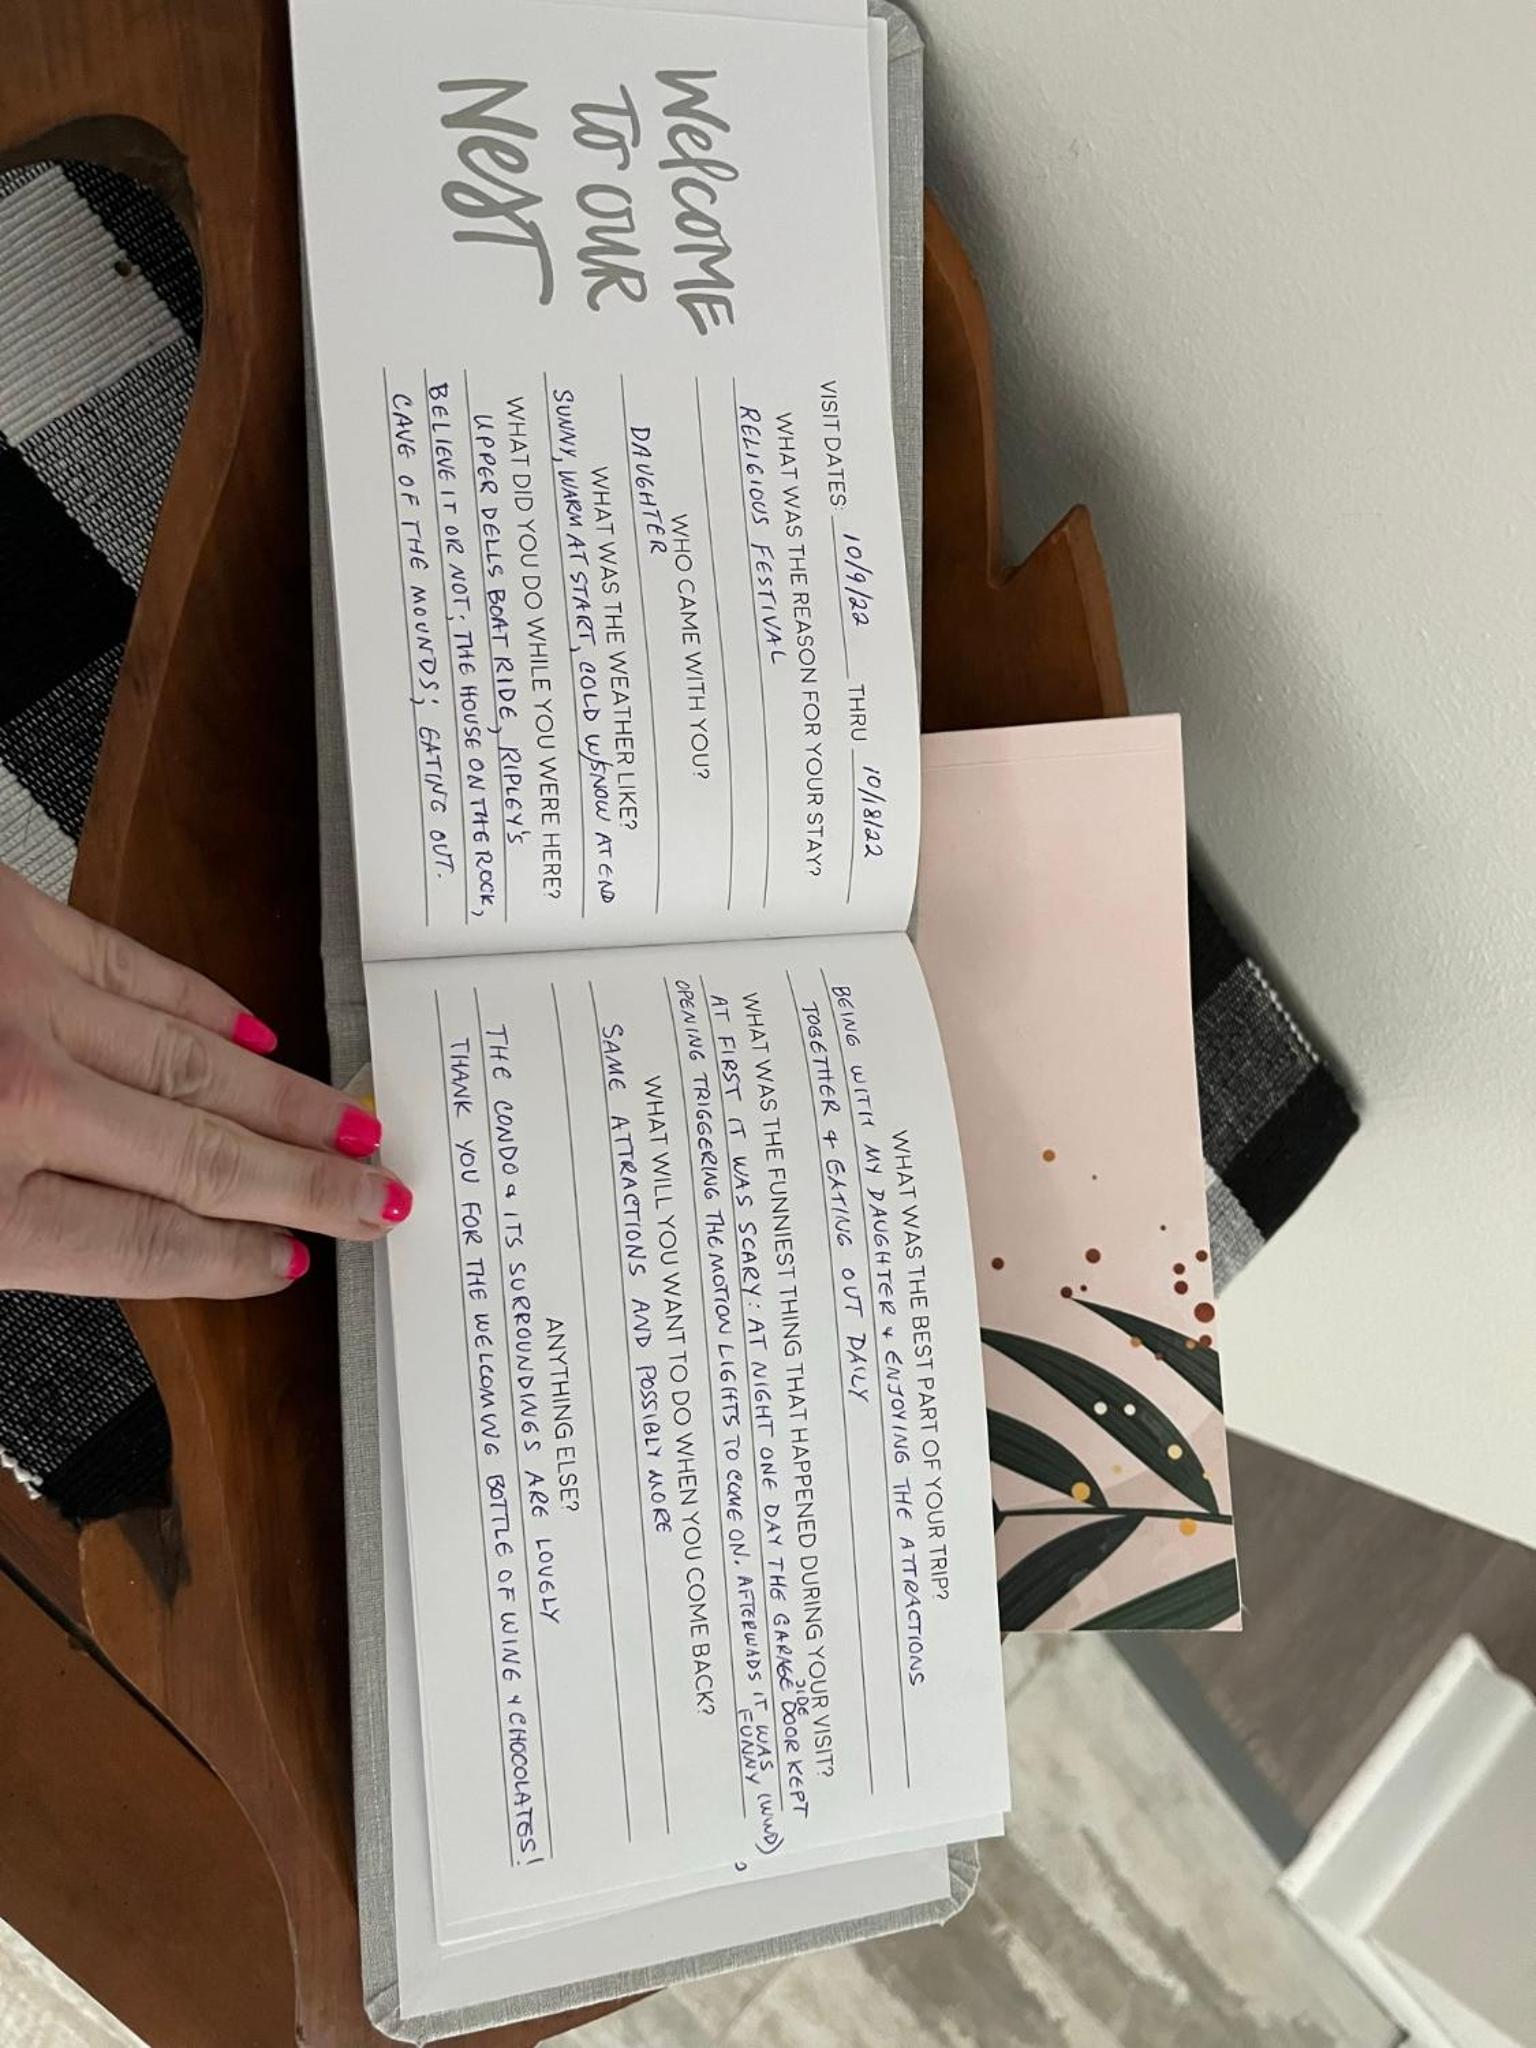 Welcome
To OUR
NesT
VISIT DATES: 10/9/22 THRU 10/18/22
WHAT WAS THE REASON FOR YOUR STAY?
RELIGIOUS FESTIVAL
WHO CAME WITH YOU?
DAUGHTER
WHAT WAS THE WEATHER LIKE?
SUNNY, WARM AT START, COLD W/SNOW AT END
WHAT DID YOU DO WHILE YOU WERE HERE?
UPPER DELLS BOAT RIDE, RIPLEY'S
BELIEVE IT OR NOT; THE HOUSE ON THE ROCK,
CAVE OF THE MOUNDS; EATING OUT.
WHAT WAS THE BEST PART OF YOUR TRIP?
BEING WITH MY DAUGHTER & ENJOYING THE ATTRACTIONS
TOGETHER & EATING OUT DAILY
WHAT WAS THE FUNNIEST THING THAT HAPPENED DURING YOUR VISIT?
AT FIRST IT WAS SCARY: AT NIGHT ONE DAY THE GARAGE SIDE DOOR KEPT
OPENING TRIGGERING THE MOTION LIGHTS TO COME ON. AFTERWADS IT WAS FUNNY (WIND)
WHAT WILL YOU WANT TO DO WHEN YOU COME BACK?
SAME ATTRACTIONS AND POSSIBLY MORE
ANYTHING ELSE?
THE CONDO & ITS SURROUNDINGS ARE LOVELY
THANK YOU FOR THE WELCOMING BOTTLE OF WING & CHOCOLATES!